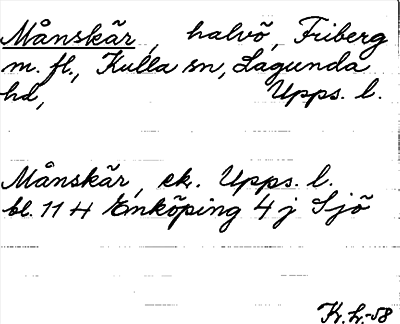 Månskär, halvö, Friberg
m. fl., Kulla sn, Lagunda
hd, Upps. l.
Månskär, ek. Upps. l.
bl. 11 H Enköping 4 j Sjö
Kr. Lr.-58